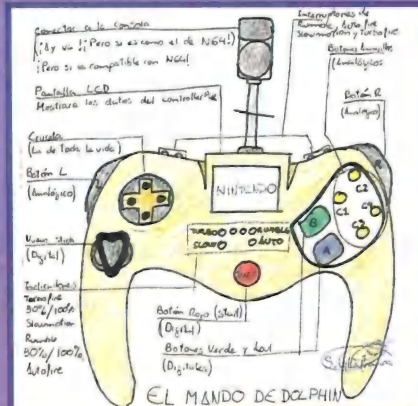 Conector a la consola
(¡Ey va!¡Pero si es como el de N64!)
¡Pero si es compatible con N64!
Pantalla LCD
Mostrara los datos del controller Pak
Cruceta
(La de toda la vida)
Botón L
(Analógico)
Nuevo Stick
(Digital)
Indicadores
Turbofire
50%/100%
Slowmotion
Rumble
50%/100%
Autofire
Interruptores de
Rumble, Autofire
Slowmotion y Turbofire
Botones Amarillos
(Analógicos)
Botón R
(Analógico)
NINTENDO
C2
C1
C4
C3
B
A
TURBO
RUMBLE
SLOW
AUTO
Botón Rojo (Start)
(Digital)
Botones Verde y Azul
(Digitales)
EL MANDO DE DOLPHIN